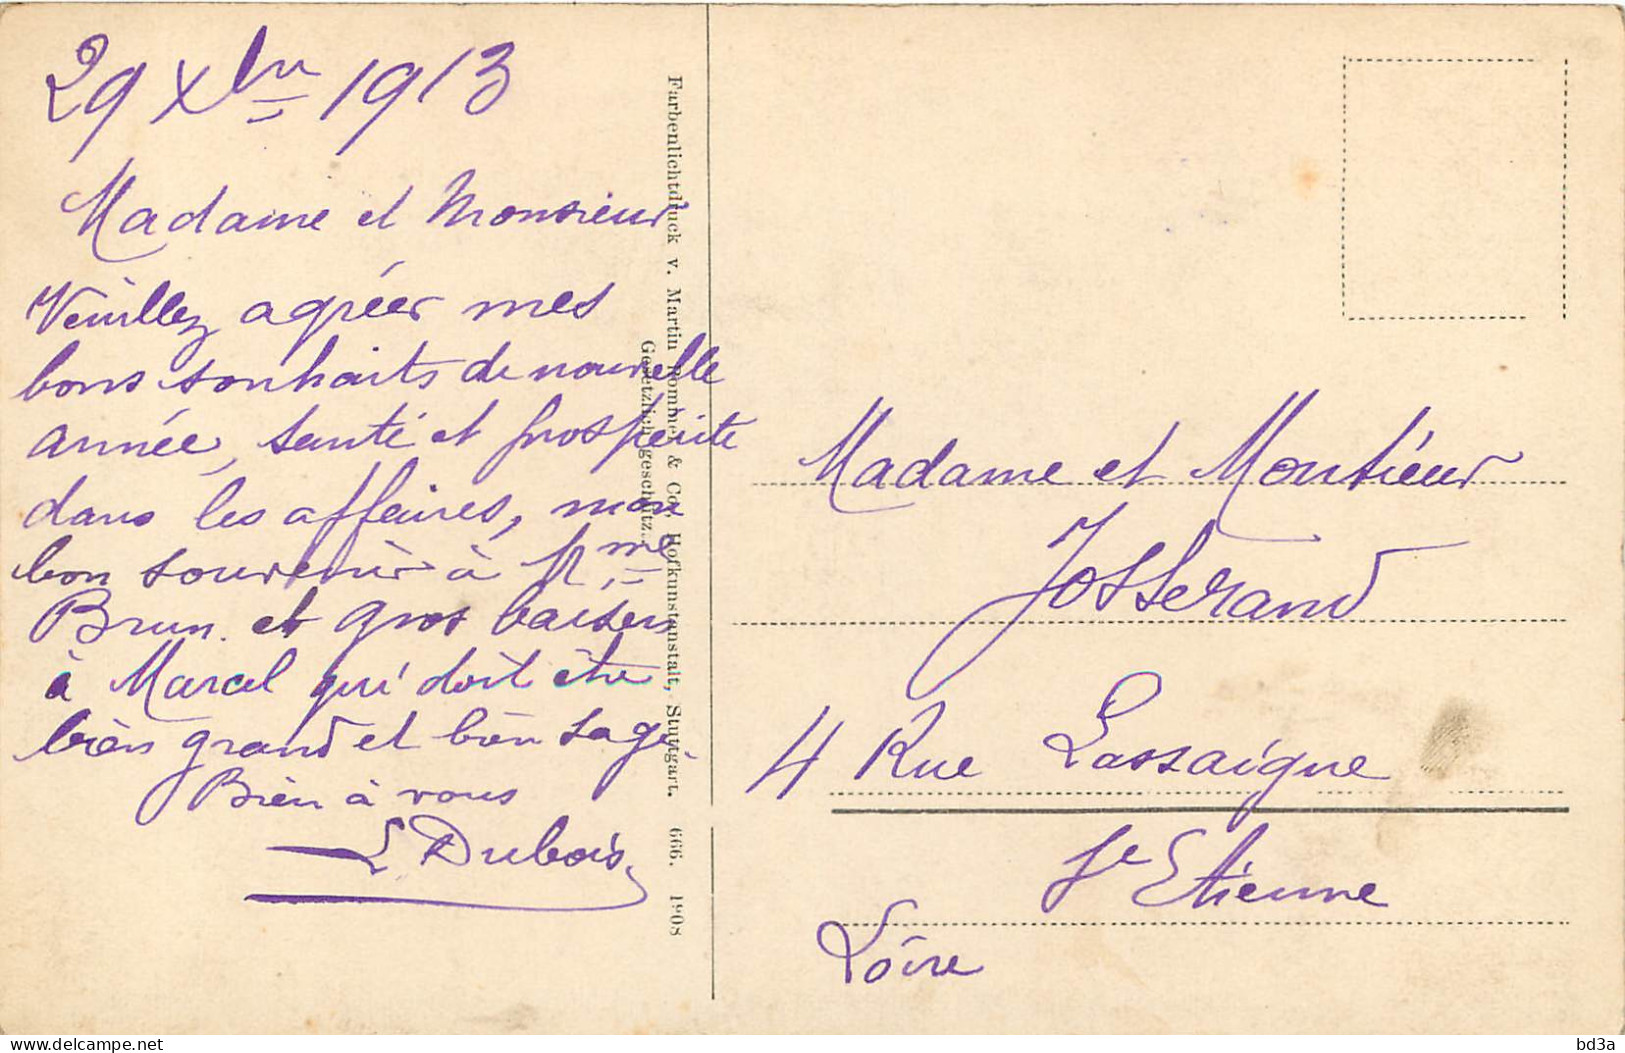 29 Xbre 1913
Madame et Monsieur
Veuillez agréer mes
bons souhaits de nouvelle
année, santé et prosperite
dans les affaires, mon
bon souvenir à Mme
Brun. et gros baisers
à Marcel qui doit être
bien grand et bien sage.
Bien à vous
L. Dubois
Farbenlichtdruck v. Martin Rommel & Co., Hofkunstanstalt, Stuttgart. 666. 1908
Gesetzlich geschützt.
Madame et Monsieur
Josserand
4 Rue Lassaigne
St Etienne
Loire
delcampe.net
bd3a